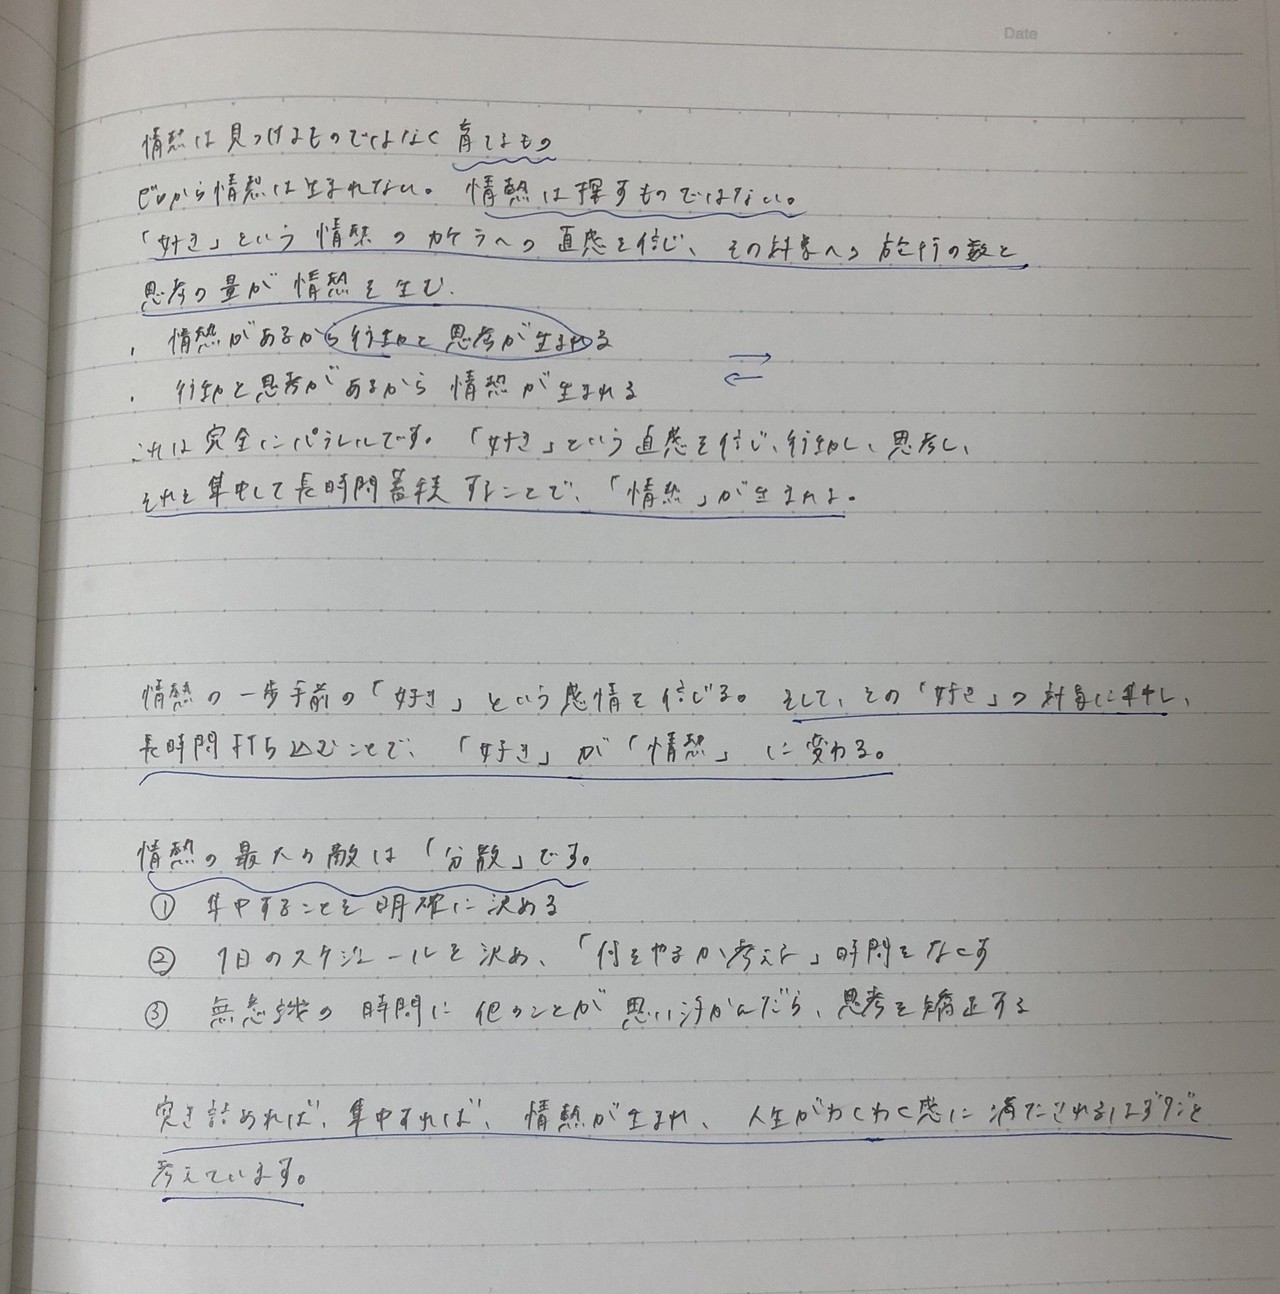 Date
情熱は見つけるものではなく育てるもの
ゼロから情熱は生まれない。情熱は探すものではない。
「好き」という情熱のカケラへの直感を信じ、その対象への旅行の数と
思考の量が情熱を生む.
・情熱があるから行動と思考が生まれる
・行動と思考があるから情熱が生まれる
これは完全にパラレルです。「好き」という直感を信じ、行動し、思考し、
それを集中して長時間蓄積することで、「情熱」が生まれる。
情熱の一歩手前の「好き」という感情を信じる。そして、その「好き」の対象に集中し、
長時間打ち込むことで、「好き」が「情熱」に変わる。
情熱の最大の敵は「分散」です。
① 集中することを明確に決める
② 1日のスケジュールを決め、「何をやるか考える」時間をなくす
③ 無意識の時間に他のことが思い浮かんだら、思考を矯正する
突き詰めれば、集中すれば、情熱が生まれ、人生がわくわく感に満たされるはずだと
考えています。